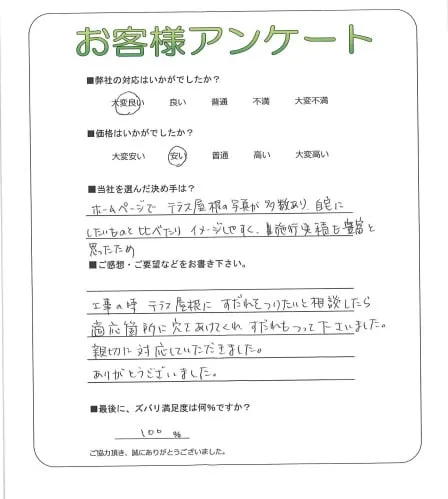 お客様アンケート
■弊社の対応はいかがでしたか？
大変良い 良い 普通 不満 大変不満
■価格はいかがでしたか？
大変安い 安い 普通 高い 大変高い
■当社を選んだ決め手は？
ホームページで テラス屋根の写真が多数あり 自宅に
したいものと比べたり イメージしやすく、施行実積も豊富と
思ったため
■ご感想・ご要望などをお書き下さい。
工事の時 テラス屋根に すだれをつりたいと相談したら
適応箇所に穴をあけてくれ すだれもつって下さいました。
親切に対応していただきました。
ありがとうございました。
■最後に、ズバリ満足度は何％ですか？
100 %
ご協力頂き、誠にありがとうございました。